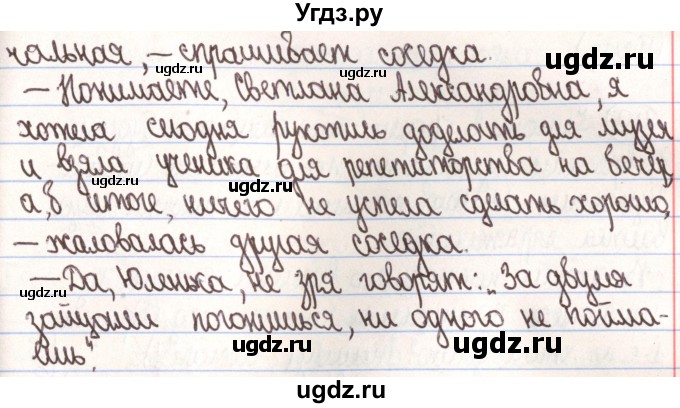 Угдз.ру
чальная, – спрашивает соседка.
– Понимаете, Светлана Александровна, я
хотела сегодня рукопись доделать для музея
и взяла ученика для репетиторства на вечер,
а, в итоге, ничего не успела сделать хорошо,
– жаловалась другая соседка.
– Да, Юленька, не зря говорят: „За двумя
зайцами погонишься, ни одного не пойма-
ешь".
ugdz.ru
ugdz.ru
ugdz.ru
ugdz.ru
ugdz.ru
ugdz.ru
ugdz.ru
ugdz.ru
ugdz.ru
ugdz.ru
ugdz.ru
ugdz.ru
ugdz.ru